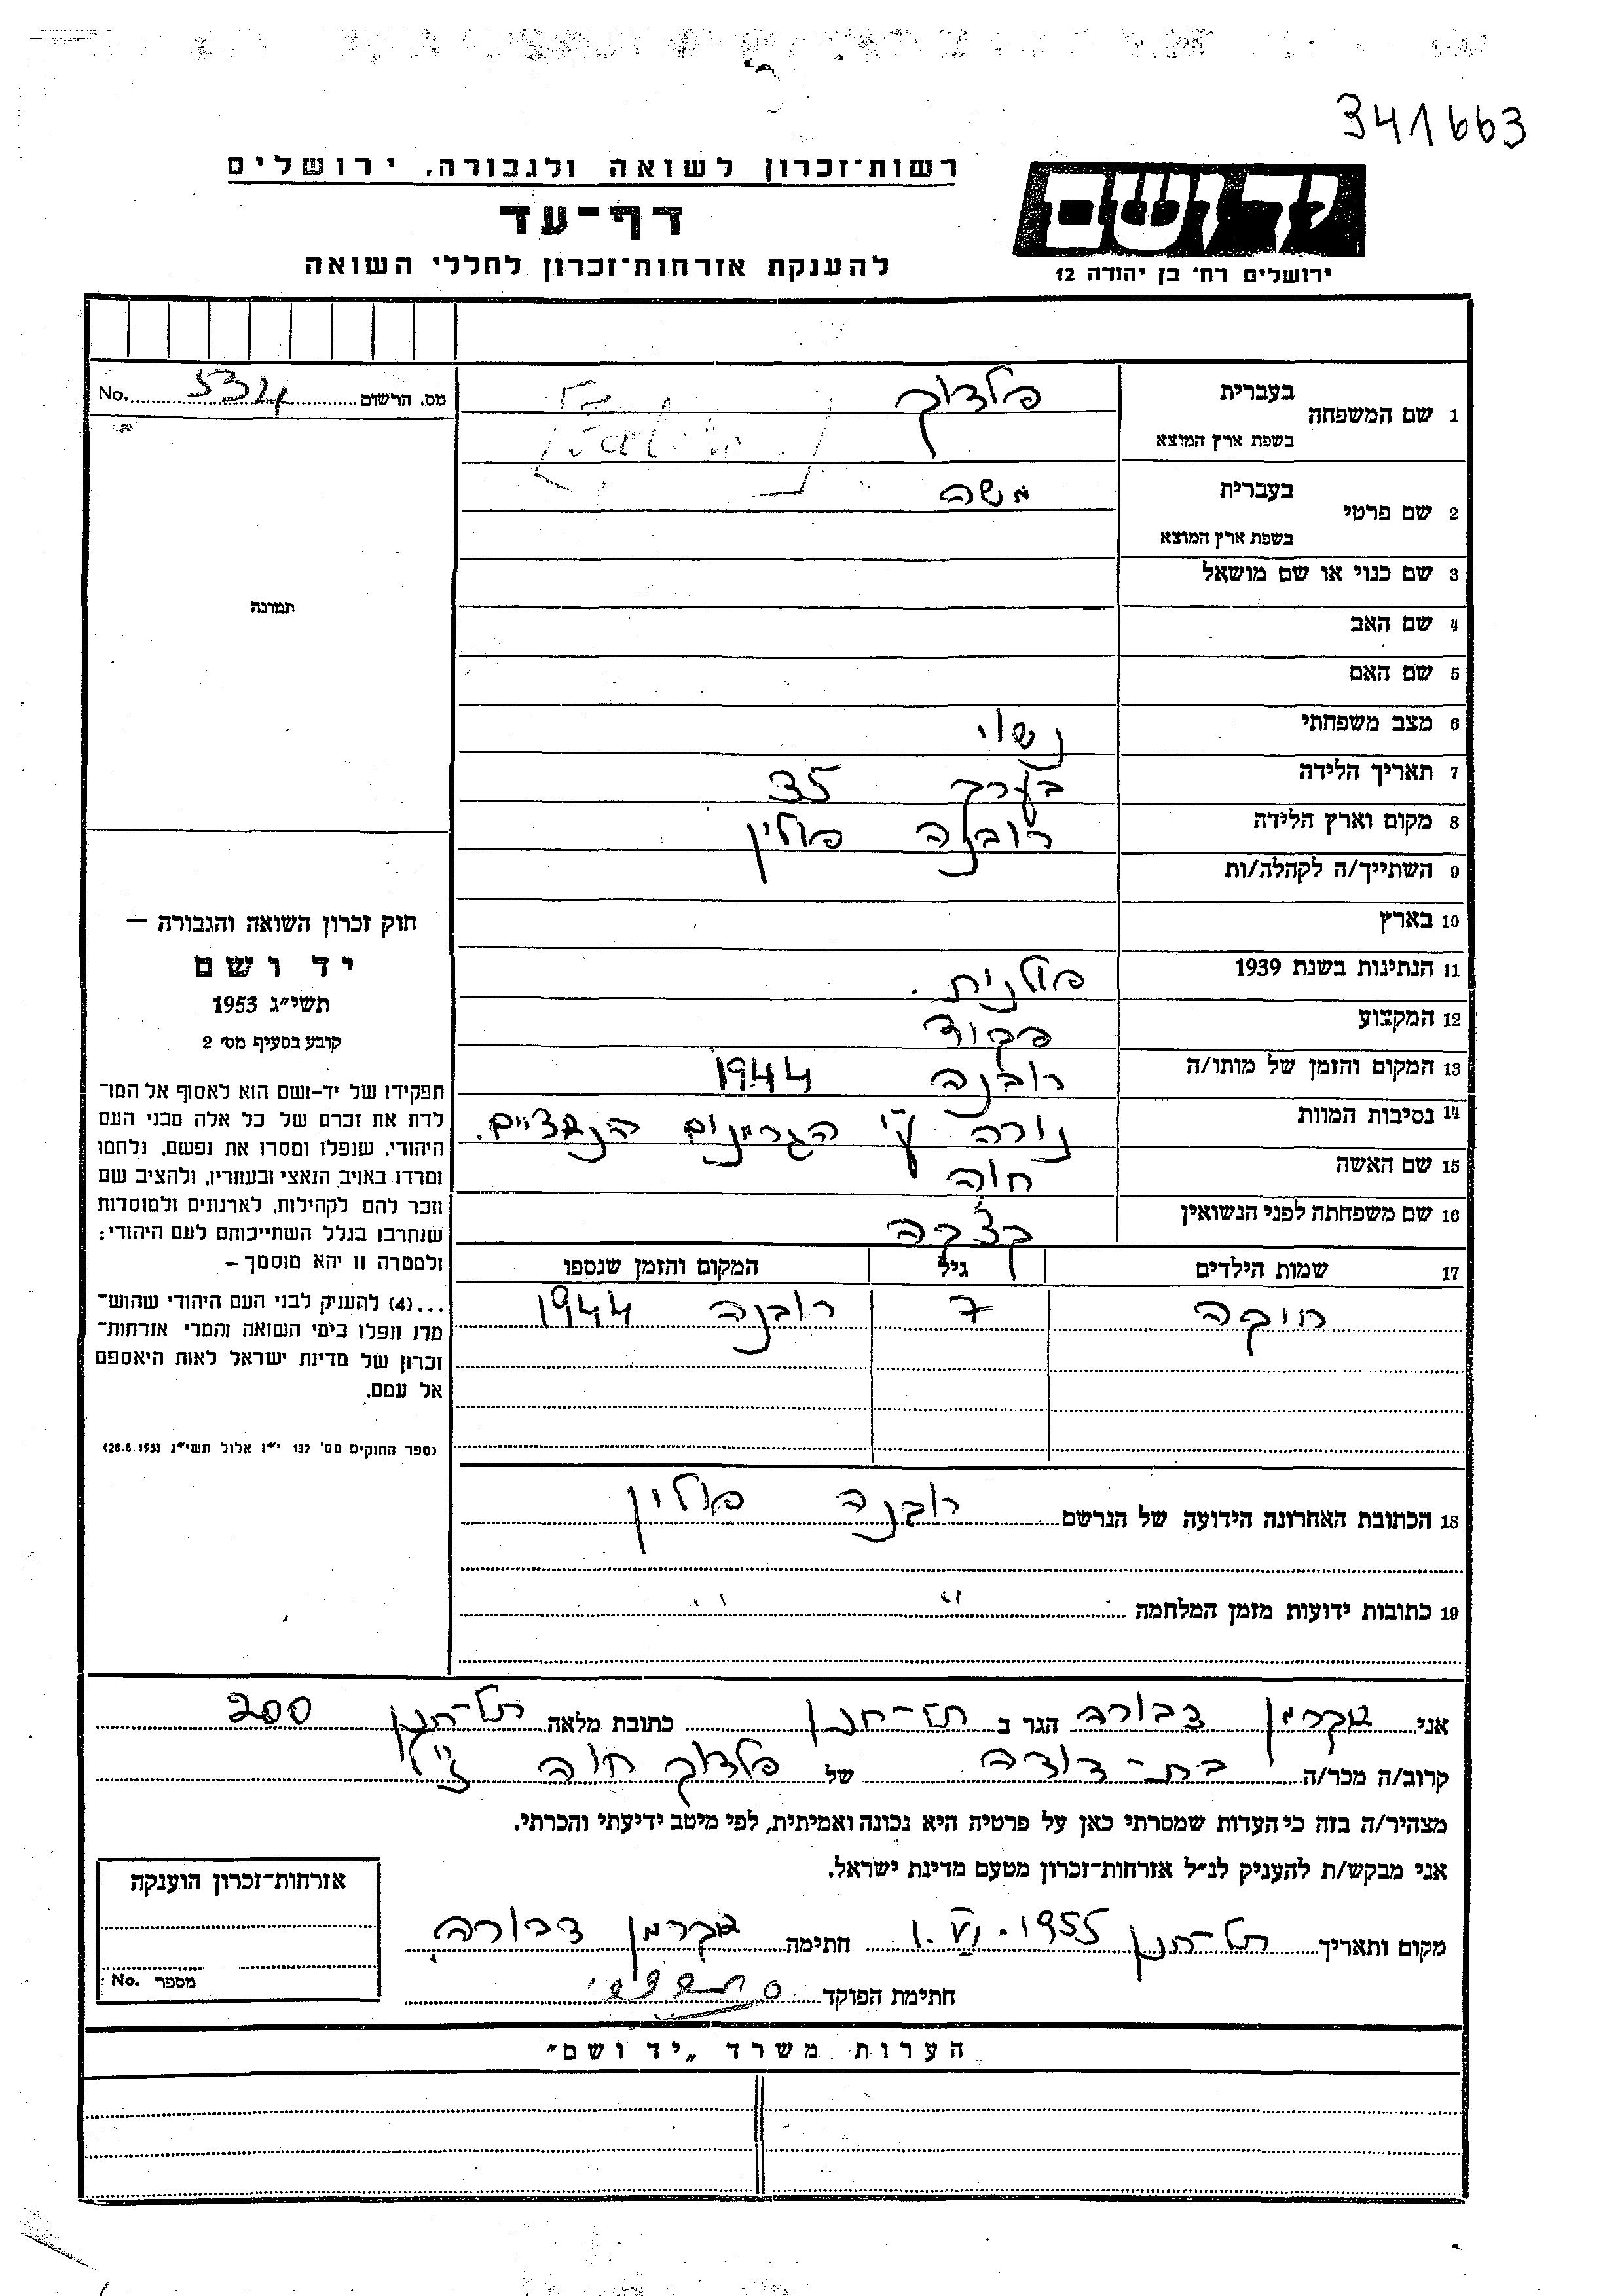 341663
רשות־זכרון לשואה ולגבורה, ירושלים
דף-עד
להענקת אזרחות־זכרון לחללי השואה
יד ושם
ירושלים רח׳ בן יהודה 12
מס. הרשום 5314 No.
תמונה
חוק זכרון השואה והגבורה –
יד ושם
תשי״ג 1953
קובע בסעיף מס׳ 2
תפקידו של יד-ושם הוא לאסוף אל המו־
לדת את זכרם של כל אלה מבני העם
היהודי, שנפלו ומסרו את נפשם, נלחמו
ומרדו באויב הנאצי ובעוזריו, ולהציב שם
וזכר להם לקהילות, לארגונים ולמוסדות
שנחרבו בגלל השתייכותם לעם היהודי:
ולמטרה זו יהא מוסמך –
...(4) להעניק לבני העם היהודי שהוש־
מדו ונפלו בימי השואה והמרי אזרחות־
זכרון של מדינת ישראל לאות היאספם
אל עמם.
(ספר החוקים מס׳ 132 י״ז אלול תשי״ג 28.8.1953)
1 שם המשפחה בעברית פלדוק
בשפת ארץ המוצא
2 שם פרטי בעברית משה
בשפת ארץ המוצא
3 שם כנוי או שם מושאל
4 שם האב
5 שם האם
6 מצב משפחתי נשוי
7 תאריך הלידה בערך 35
8 מקום וארץ הלידה רובנה פולין
9 השתייך/ה לקהלה/ות
10 בארץ
11 הנתינות בשנת 1939 פולנית.
12 המקצוע פקיד
13 המקום והזמן של מותו/ה רובנה 1944
14 נסיבות המוות נורה ע״י הגרמנים הנאציים.
15 שם האשה חוה
16 שם משפחתה לפני הנשואין
17 שמות הילדים גיל המקום והזמן שנספו
7 רובנה 1944
18 הכתובת האחרונה הידועה של הנרשם רובנה פולין
19 כתובות ידועות מזמן המלחמה " "
אני אקרמן דבורה הגר ב תל-חנן כתובת מלאה תל-חנן 200
קרוב/ה מכר/ה בת-דודה של פלדוק חוה ז״ל
מצהיר/ה בזה כי העדות שמסרתי כאן על פרטיה היא נכונה ואמיתית, לפי מיטב ידיעתי והכרתי.
אני מבקש/ת להעניק לנ״ל אזרחות־זכרון מטעם מדינת ישראל.
מקום ותאריך תל-חנן 1.VI.1955 חתימה אקרמן דבורה
חתימת הפוקד
אזרחות־זכרון הוענקה
מספר No.
הערות משרד „יד ושם״